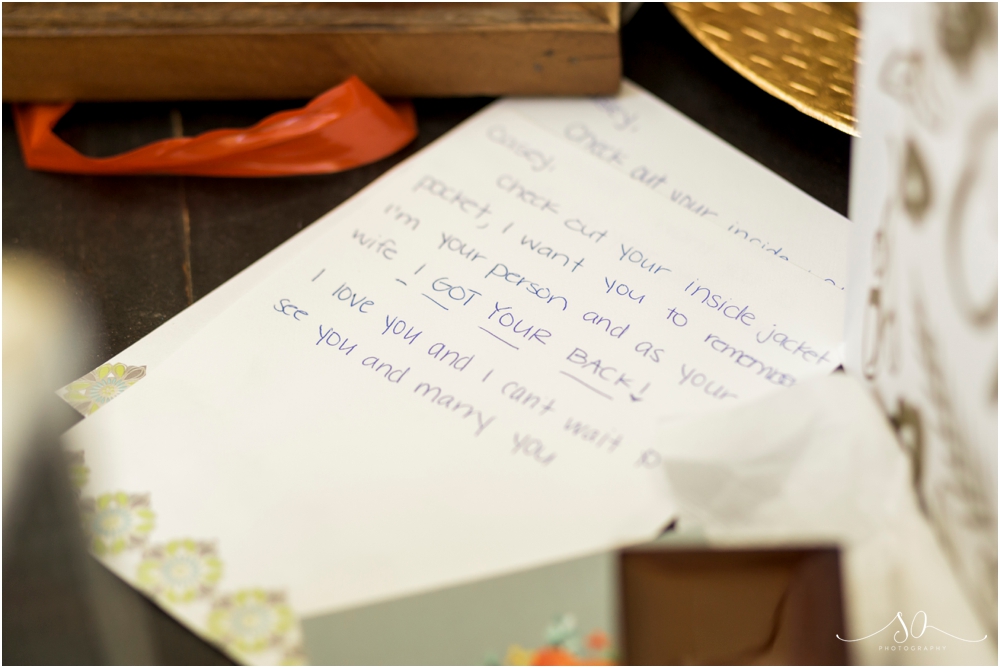 Casey,
check out your inside jacket
pocket, I want you to remember
I'm your person and as your
wife - I GOT YOUR BACK!
I love you and I can't wait to
see you and marry you
check out your inside
SO
PHOTOGRAPHY